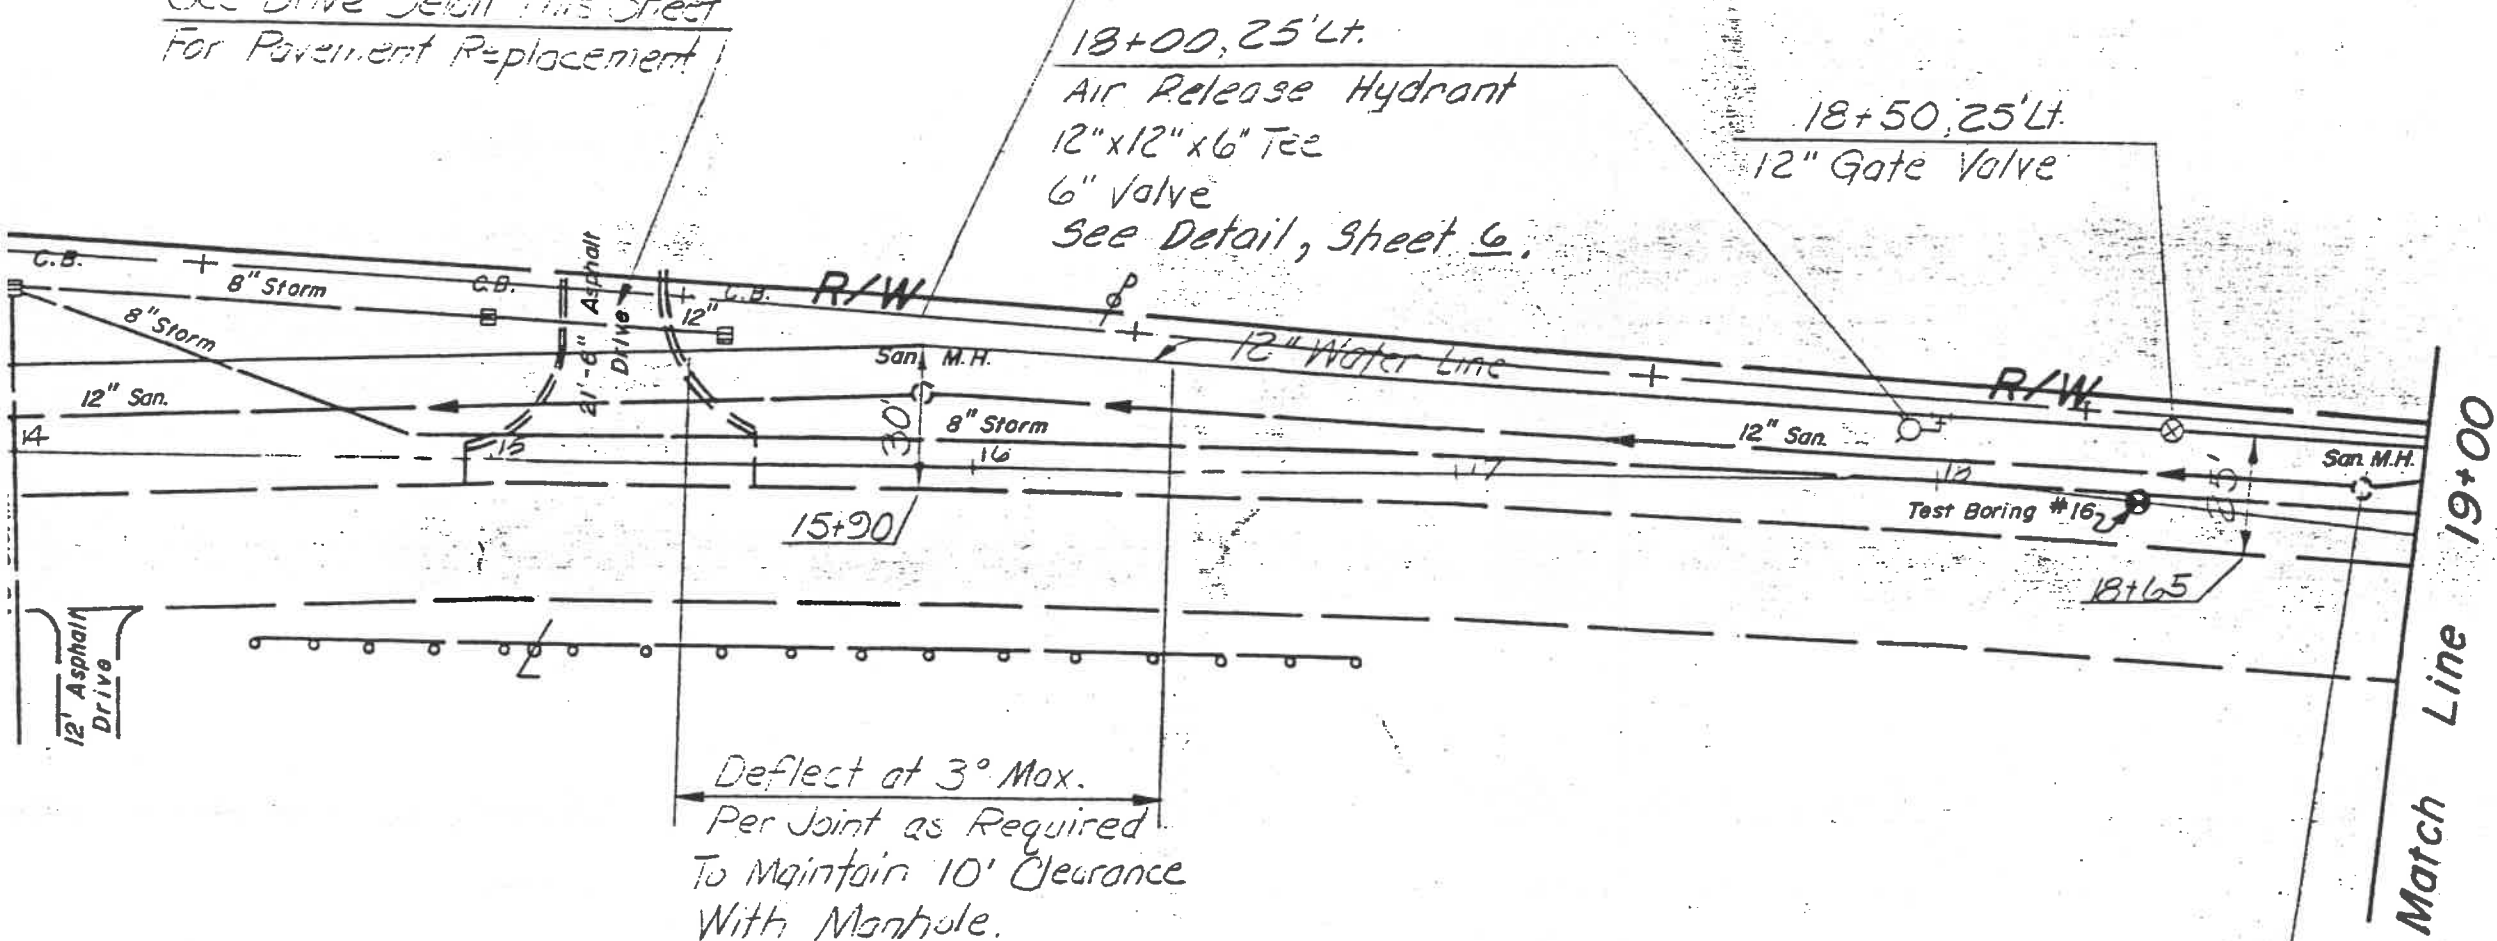 See Drive Detail This Sheet
For Pavement Replacement
18+00, 25' Lt.
Air Release Hydrant
12"x12"x6" Tee
6" Valve
See Detail, Sheet 6.
18+50, 25' Lt.
12" Gate Valve
C.B.
8" Storm
8" Storm
C.B.
21'-6" Asphalt
Drive
12"
C.B.
R/W
12" Water Line
R/W
San. M.H.
12" San.
14
15
30'
8" Storm
16
17
12" San.
18
Test Boring #16
San. M.H.
15+90
18+65
12' Asphalt
Drive
Deflect at 3° Max.
Per Joint as Required
To Maintain 10' Clearance
With Manhole.
Match Line 19+00